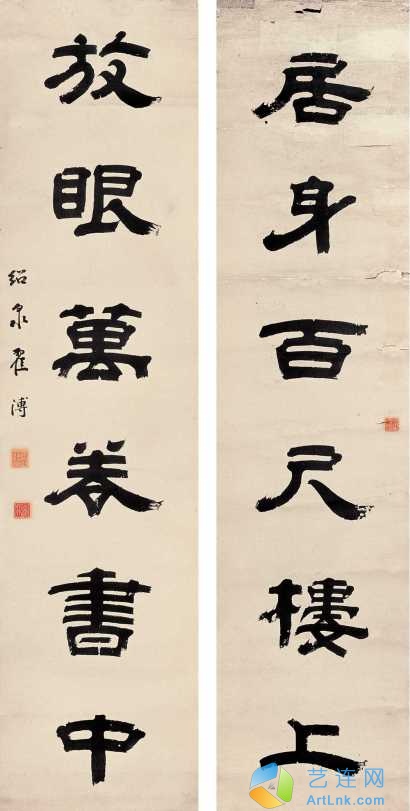 居身百尺樓上
放眼萬卷書中
紹泉翟溥
艺连网
ArtLnk.com